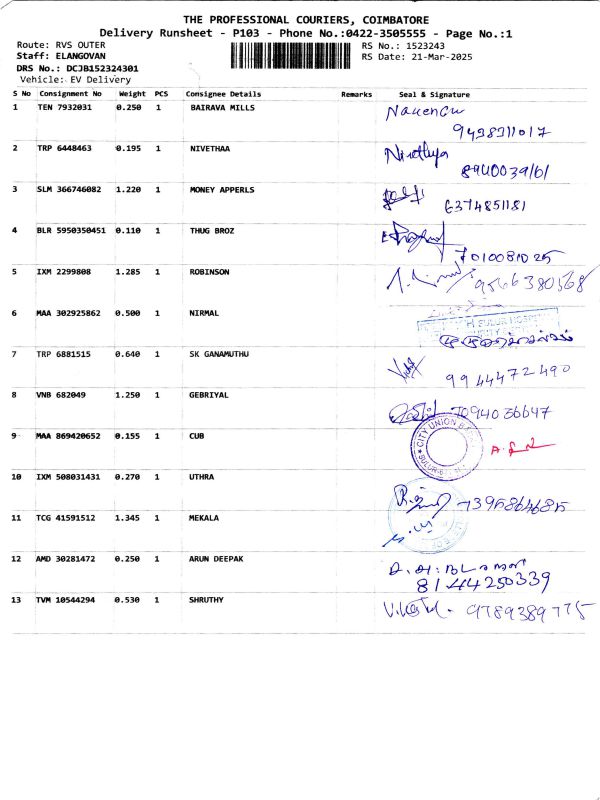 THE PROFESSIONAL COURIERS, COIMBATORE
Delivery Runsheet - P103 - Phone No.:0422-3505555 - Page No.:1
Route: RVS OUTER RS No.: 1523243
Staff: ELANGOVAN RS Date: 21-Mar-2025
DRS No.: DCJB152324301
Vehicle: EV Delivery
S No Consignment No Weight PCS Consignee Details Remarks Seal & Signature
1 TEN 7932031 0.250 1 BAIRAVA MILLS
2 TRP 6448463 0.195 1 NIVETHAA Nivethya
3 SLM 366746082 1.220 1 MONEY APPERLS
6374851181
4 BLR 5950350451 0.110 1 THUG BROZ
7010081025
5 IXM 2299808 1.285 1 ROBINSON
9566380568
6 MAA 302925862 0.500 1 NIRMAL
SULUR
7 TRP 6881515 0.640 1 SK GANAMUTHU
9944472490
8 VNB 682049 1.250 1 GEBRIYAL
7094036647
9 MAA 869420652 0.155 1 CUB
CITY UNION
SULUR
10 IXM 508031431 0.270 1 UTHRA
11 TCG 41591512 1.345 1 MEKALA
12 AMD 30281472 0.250 1 ARUN DEEPAK
8144250339
13 TVM 10544294 0.530 1 SHRUTHY
9789389775